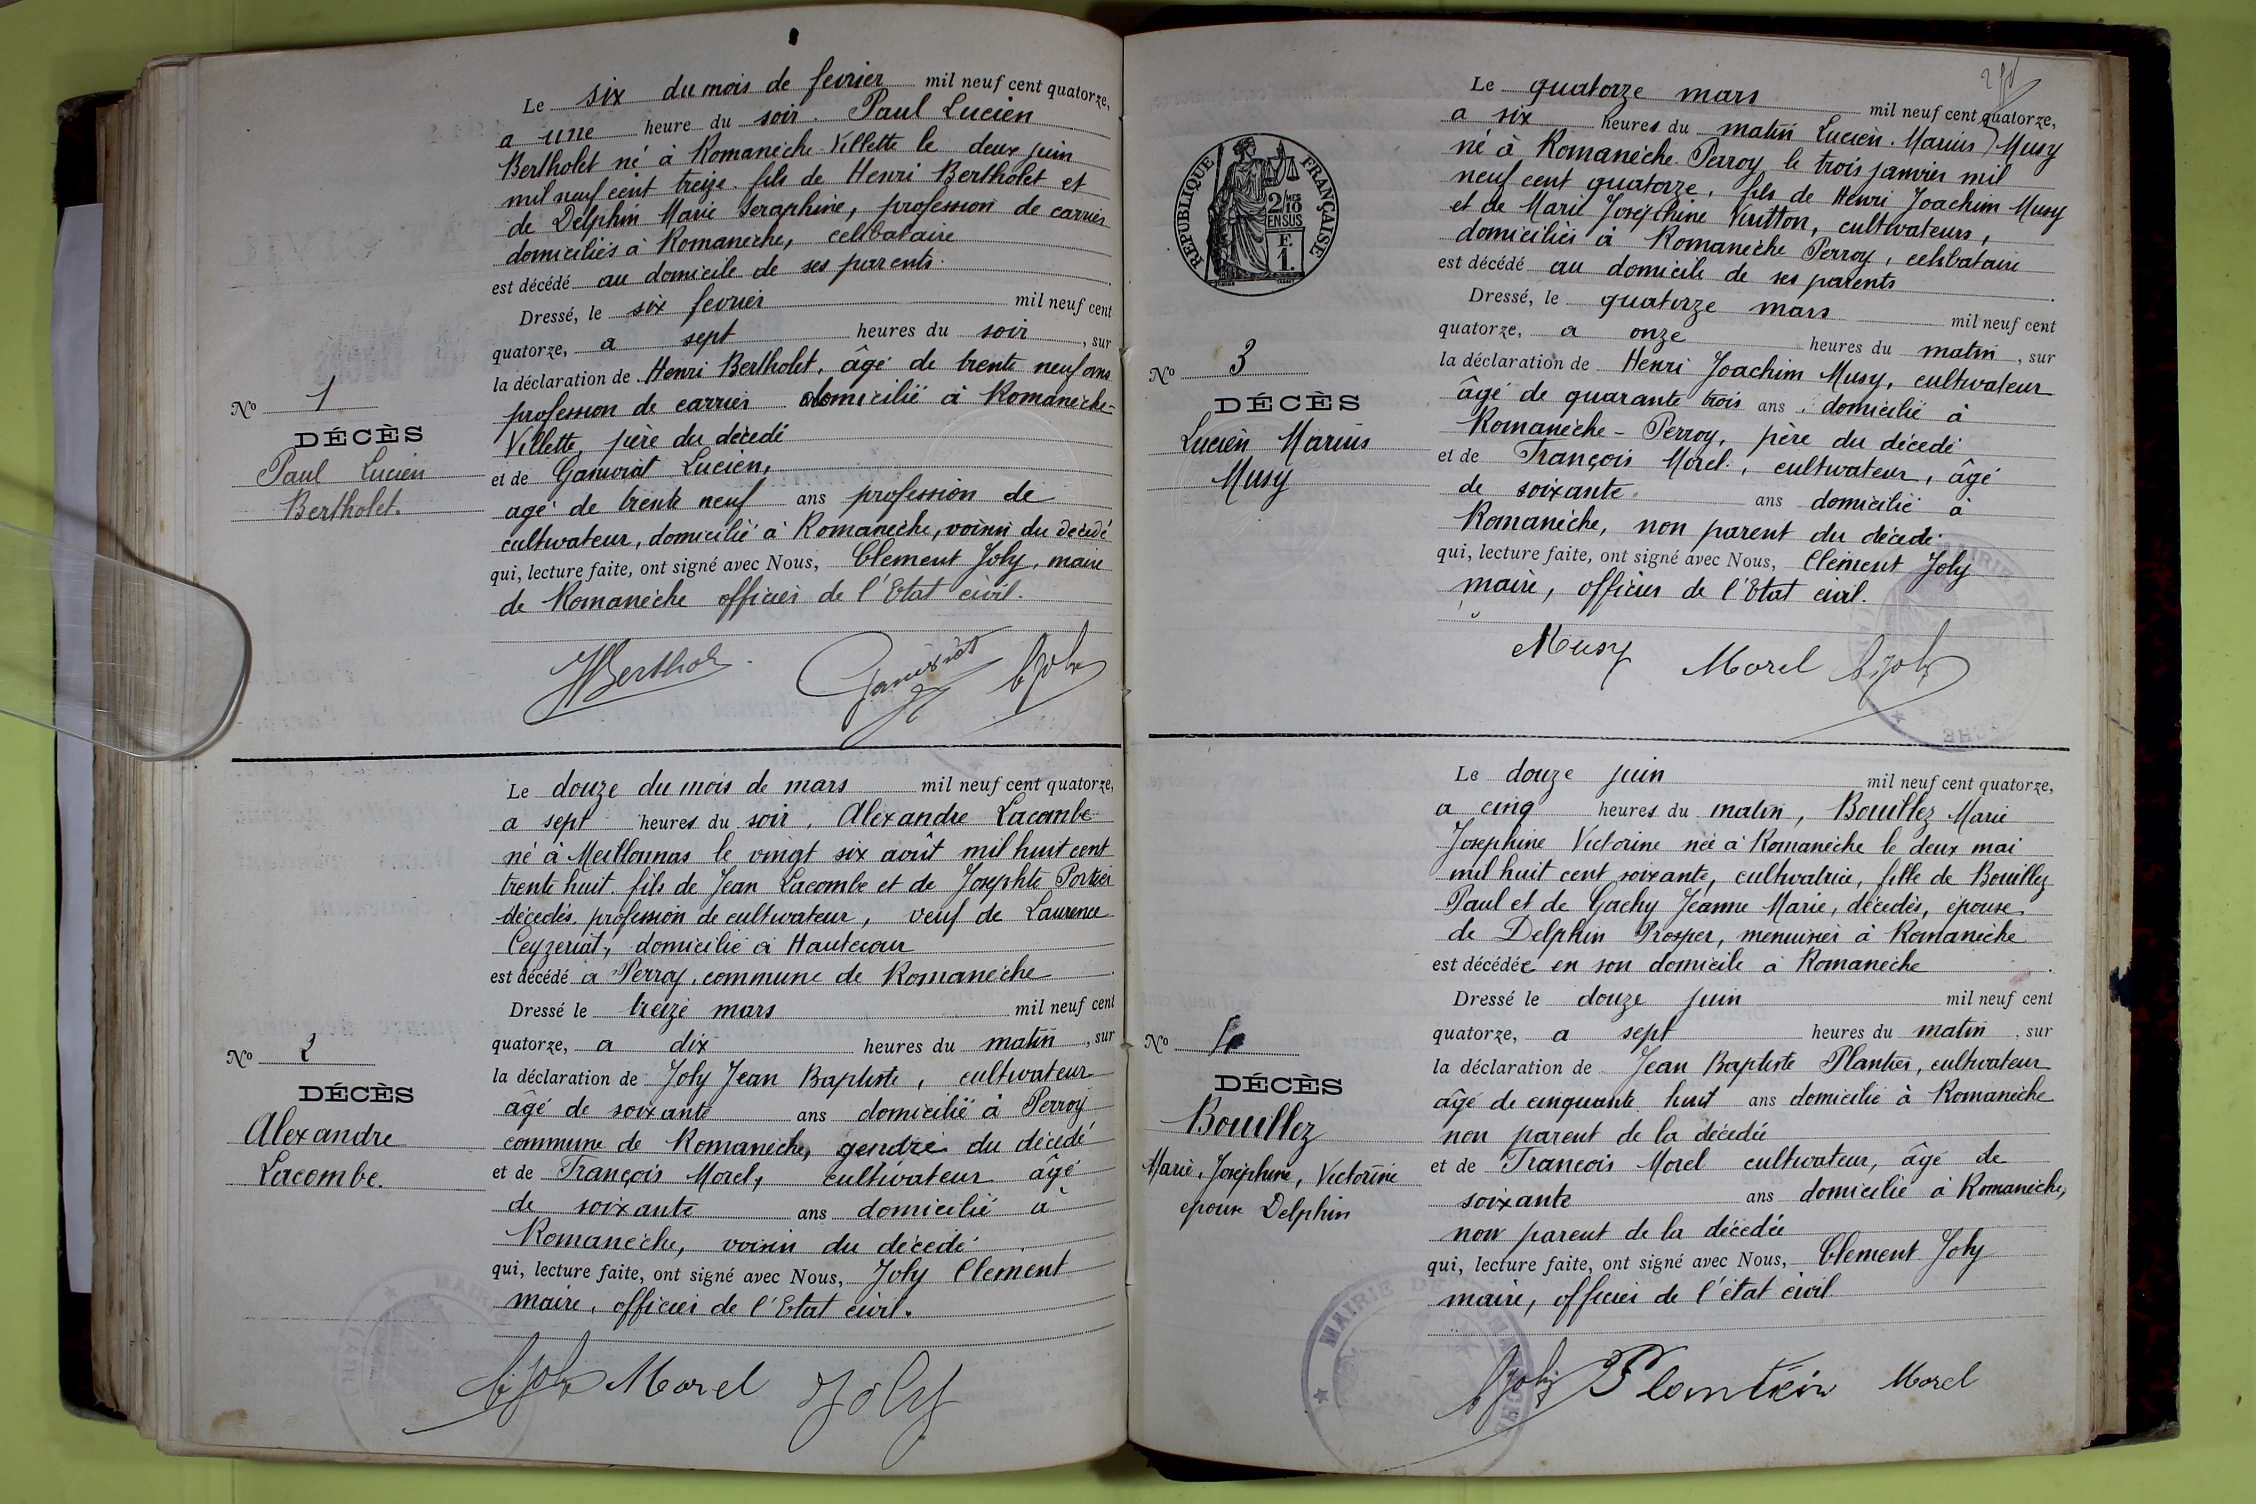 Le six du mois de fevrier mil neuf cent quatorze,
a une heure du soir. Paul Lucien
Bertholet né à Romanèche-Villette le deux juin
mil neuf cent treize. fils de Henri Bertholet et
de Delphin Marie Seraphine, profession de carrier
domiciliés à Romanèche, celibataire
est décédé au domicile de ses parents.
Dressé, le six fevrier mil neuf cent
quatorze, a sept heures du soir, sur
la déclaration de Henri Bertholet, âgé de trente neuf ans
profession de carrier domicilié à Romanèche-
Villette, père du décedé
et de Lucien,
agé de trente neuf ans profession de
cultivateur, domicilié à Romanèche, voisin du décédé
qui, lecture faite, ont signé avec Nous, Clement Joly, maire
de Romanèche officier de l'Etat civil.
No 1
DÉCÈS
Paul Lucien
Bertholet.
Le douze du mois de mars mil neuf cent quatorze,
a sept heures du soir, Alexandre Lacombe
né à Meillonnas le vingt six août mil huit cent
trente huit. fils de Jean Lacombe et de Josephte Portier
décedés, profession de cultivateur, veuf de Laurence
Ceyzeriat, domicilié à Hautecour
est décédé a Perroy, commune de Romanèche
Dressé le treize mars mil neuf cent
quatorze, a dix heures du matin, sur
la déclaration de Joly Jean Baptiste, cultivateur
âgé de soixante ans domicilié à Perroy
commune de Romanèche, gendre du décédé
et de François Morel, cultivateur âgé
de soixante ans domicilié à
Romanèche, voisin du décedé
qui, lecture faite, ont signé avec Nous, Joly Clement
maire, officier de l'Etat civil.
No 2
DÉCÈS
Alexandre
Lacombe.
C. Joly Morel Joly
RÉPUBLIQUE FRANÇAISE
2MES
10
EN SUS
F.
1.
Le quatorze mars mil neuf cent quatorze,
a six heures du matin Lucien. Marius Musy
né à Romanèche Perroy le trois janvier mil
neuf cent quatorze, fils de Henri Joachim Musy
et de Marie Joséphine Vuitton, cultivateurs,
domiciliés à Romanèche Perroy, celibataire
est décédé au domicile de ses parents
Dressé, le quatorze mars mil neuf cent
quatorze, a onze heures du matin, sur
la déclaration de Henri Joachim Musy, cultivateur
âgé de quarante trois ans, domicilié à
Romanèche-Perroy, père du décedé
et de François Morel, cultivateur, âgé
de soixante ans domicilié à
Romanèche, non parent du décedé.
qui, lecture faite, ont signé avec Nous, Clément Joly
maire, officier de l'Etat civil.
No 3
DÉCÈS
Lucien Marius
Musy
Musy Morel C. Joly
Le douze juin mil neuf cent quatorze,
a cinq heures du matin, Bouillez Marie
Josephine Victorine née à Romanèche le deux mai
mil huit cent soixante, cultivatrice, fille de Bouillez
Paul et de Gachy Jeanne Marie, décedés, epouse
de Delphin Prosper, menuisier à Romanèche
est décédée en son domicile à Romanèche
Dressé le douze juin mil neuf cent
quatorze, a sept heures du matin, sur
la déclaration de Jean Baptiste Plantier, cultivateur
âgé de cinquante huit ans domicilié à Romanèche
non parent de la décedée
et de Francois Morel cultivateur, âgé de
soixante ans domicilié à Romanèche,
non parent de la décedée
qui, lecture faite, ont signé avec Nous, Clement Joly
maire, officier de l'état civil
No 4
DÉCÈS
Bouillez
Marie, Joséphine, Victorine
epouse Delphin
MAIRIE DE
C. Joly Plantier Morel